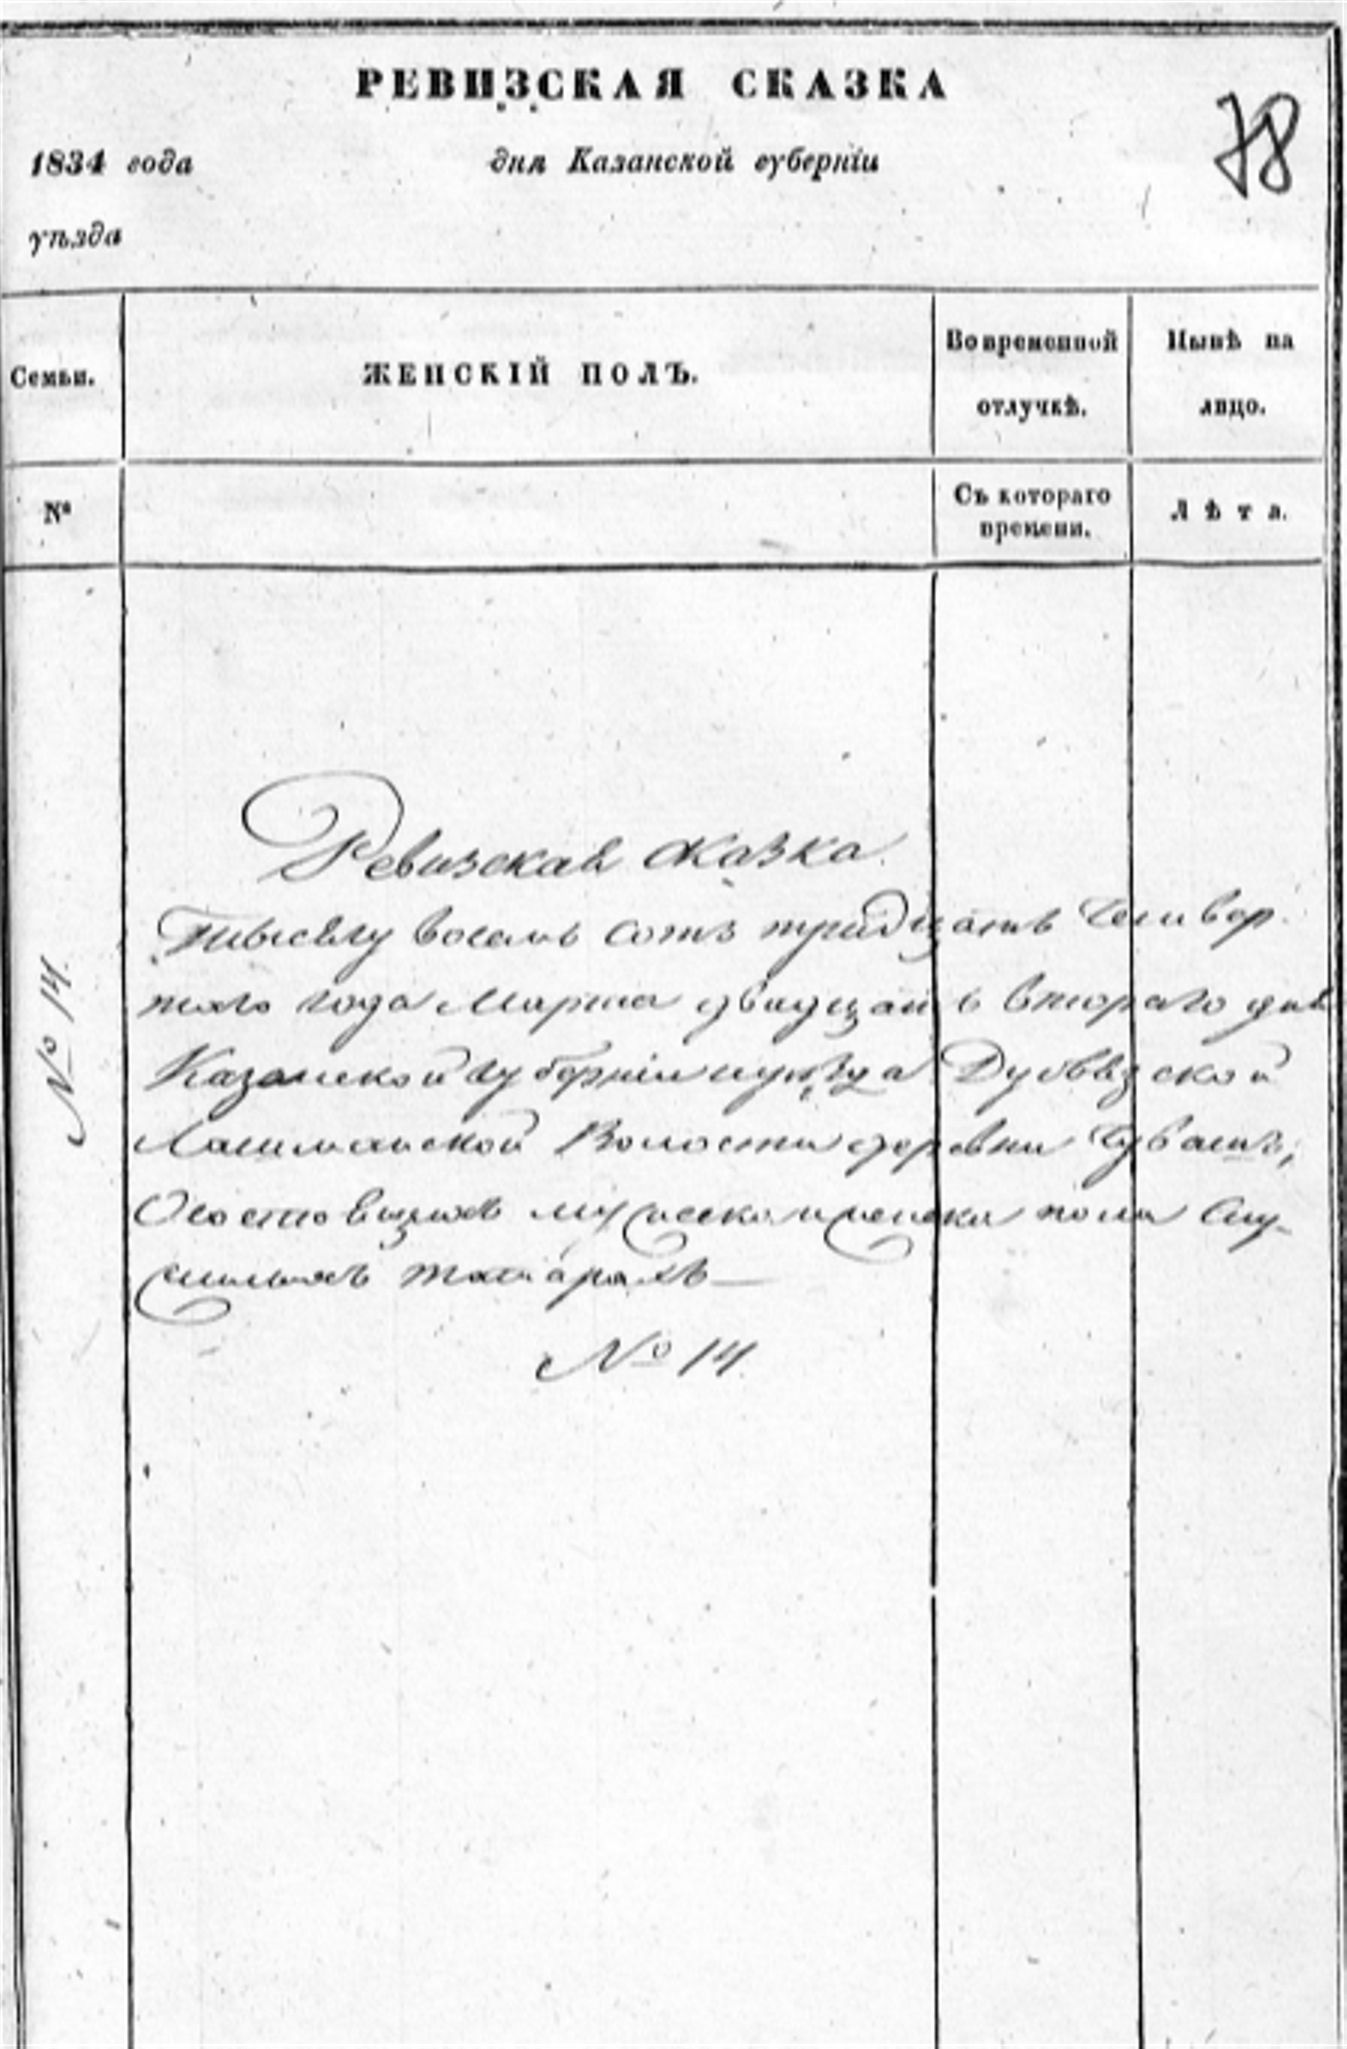 РЕВИЗСКАЯ СКАЗКА
78
1834 года дня Казанской губерніи
уѣзда
Семьи. ЖЕНСКІЙ ПОЛЪ. Во временной отлучкѣ. Нынѣ на лицо.
№ Съ котораго времени. Лѣта.
Ревизская сказка.
Тысяча восемь сотъ тридцать четвер
таго года Марта двадцать втораго дня
Казанской губерніи и уѣзда Дубьязской
Лашманской Волости деревни Чувашъ,
О состоящихъ мужеска и женска пола Слу-
жилыхъ татарахъ —
№ 14.
№ 14.